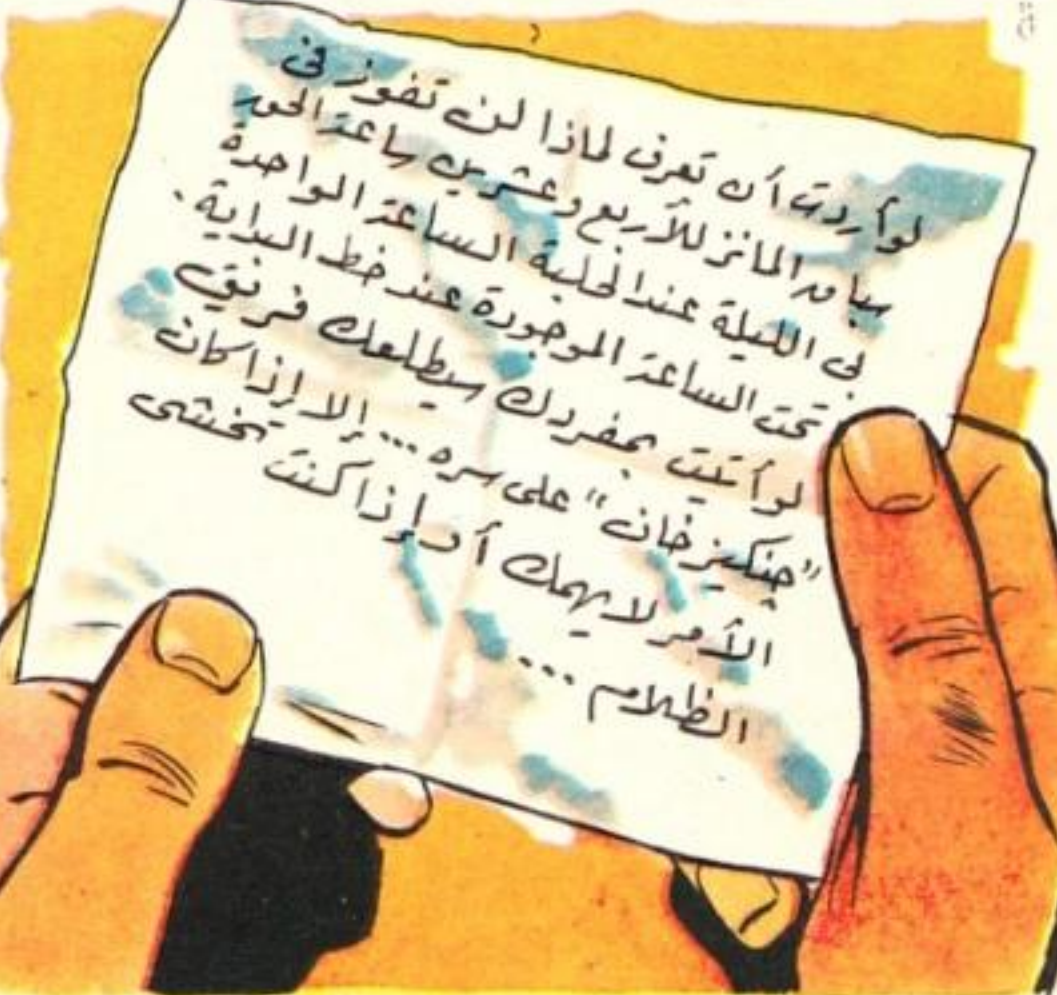 لو أردت أن تعرف لماذا لن تفوز فى
سباق المانز للأربع وعشرين ساعة الحق
بى الليلة عند الحلبة الساعة الواحدة
تحت الساعة الموجودة عند خط البداية.
لو أتيت بمفردك سيطلعك فريق
"جنكيز خان" على سره ... إلا إذا كان
الأمر لا يهمك أو إذا كنت تخشى
الظلام ...